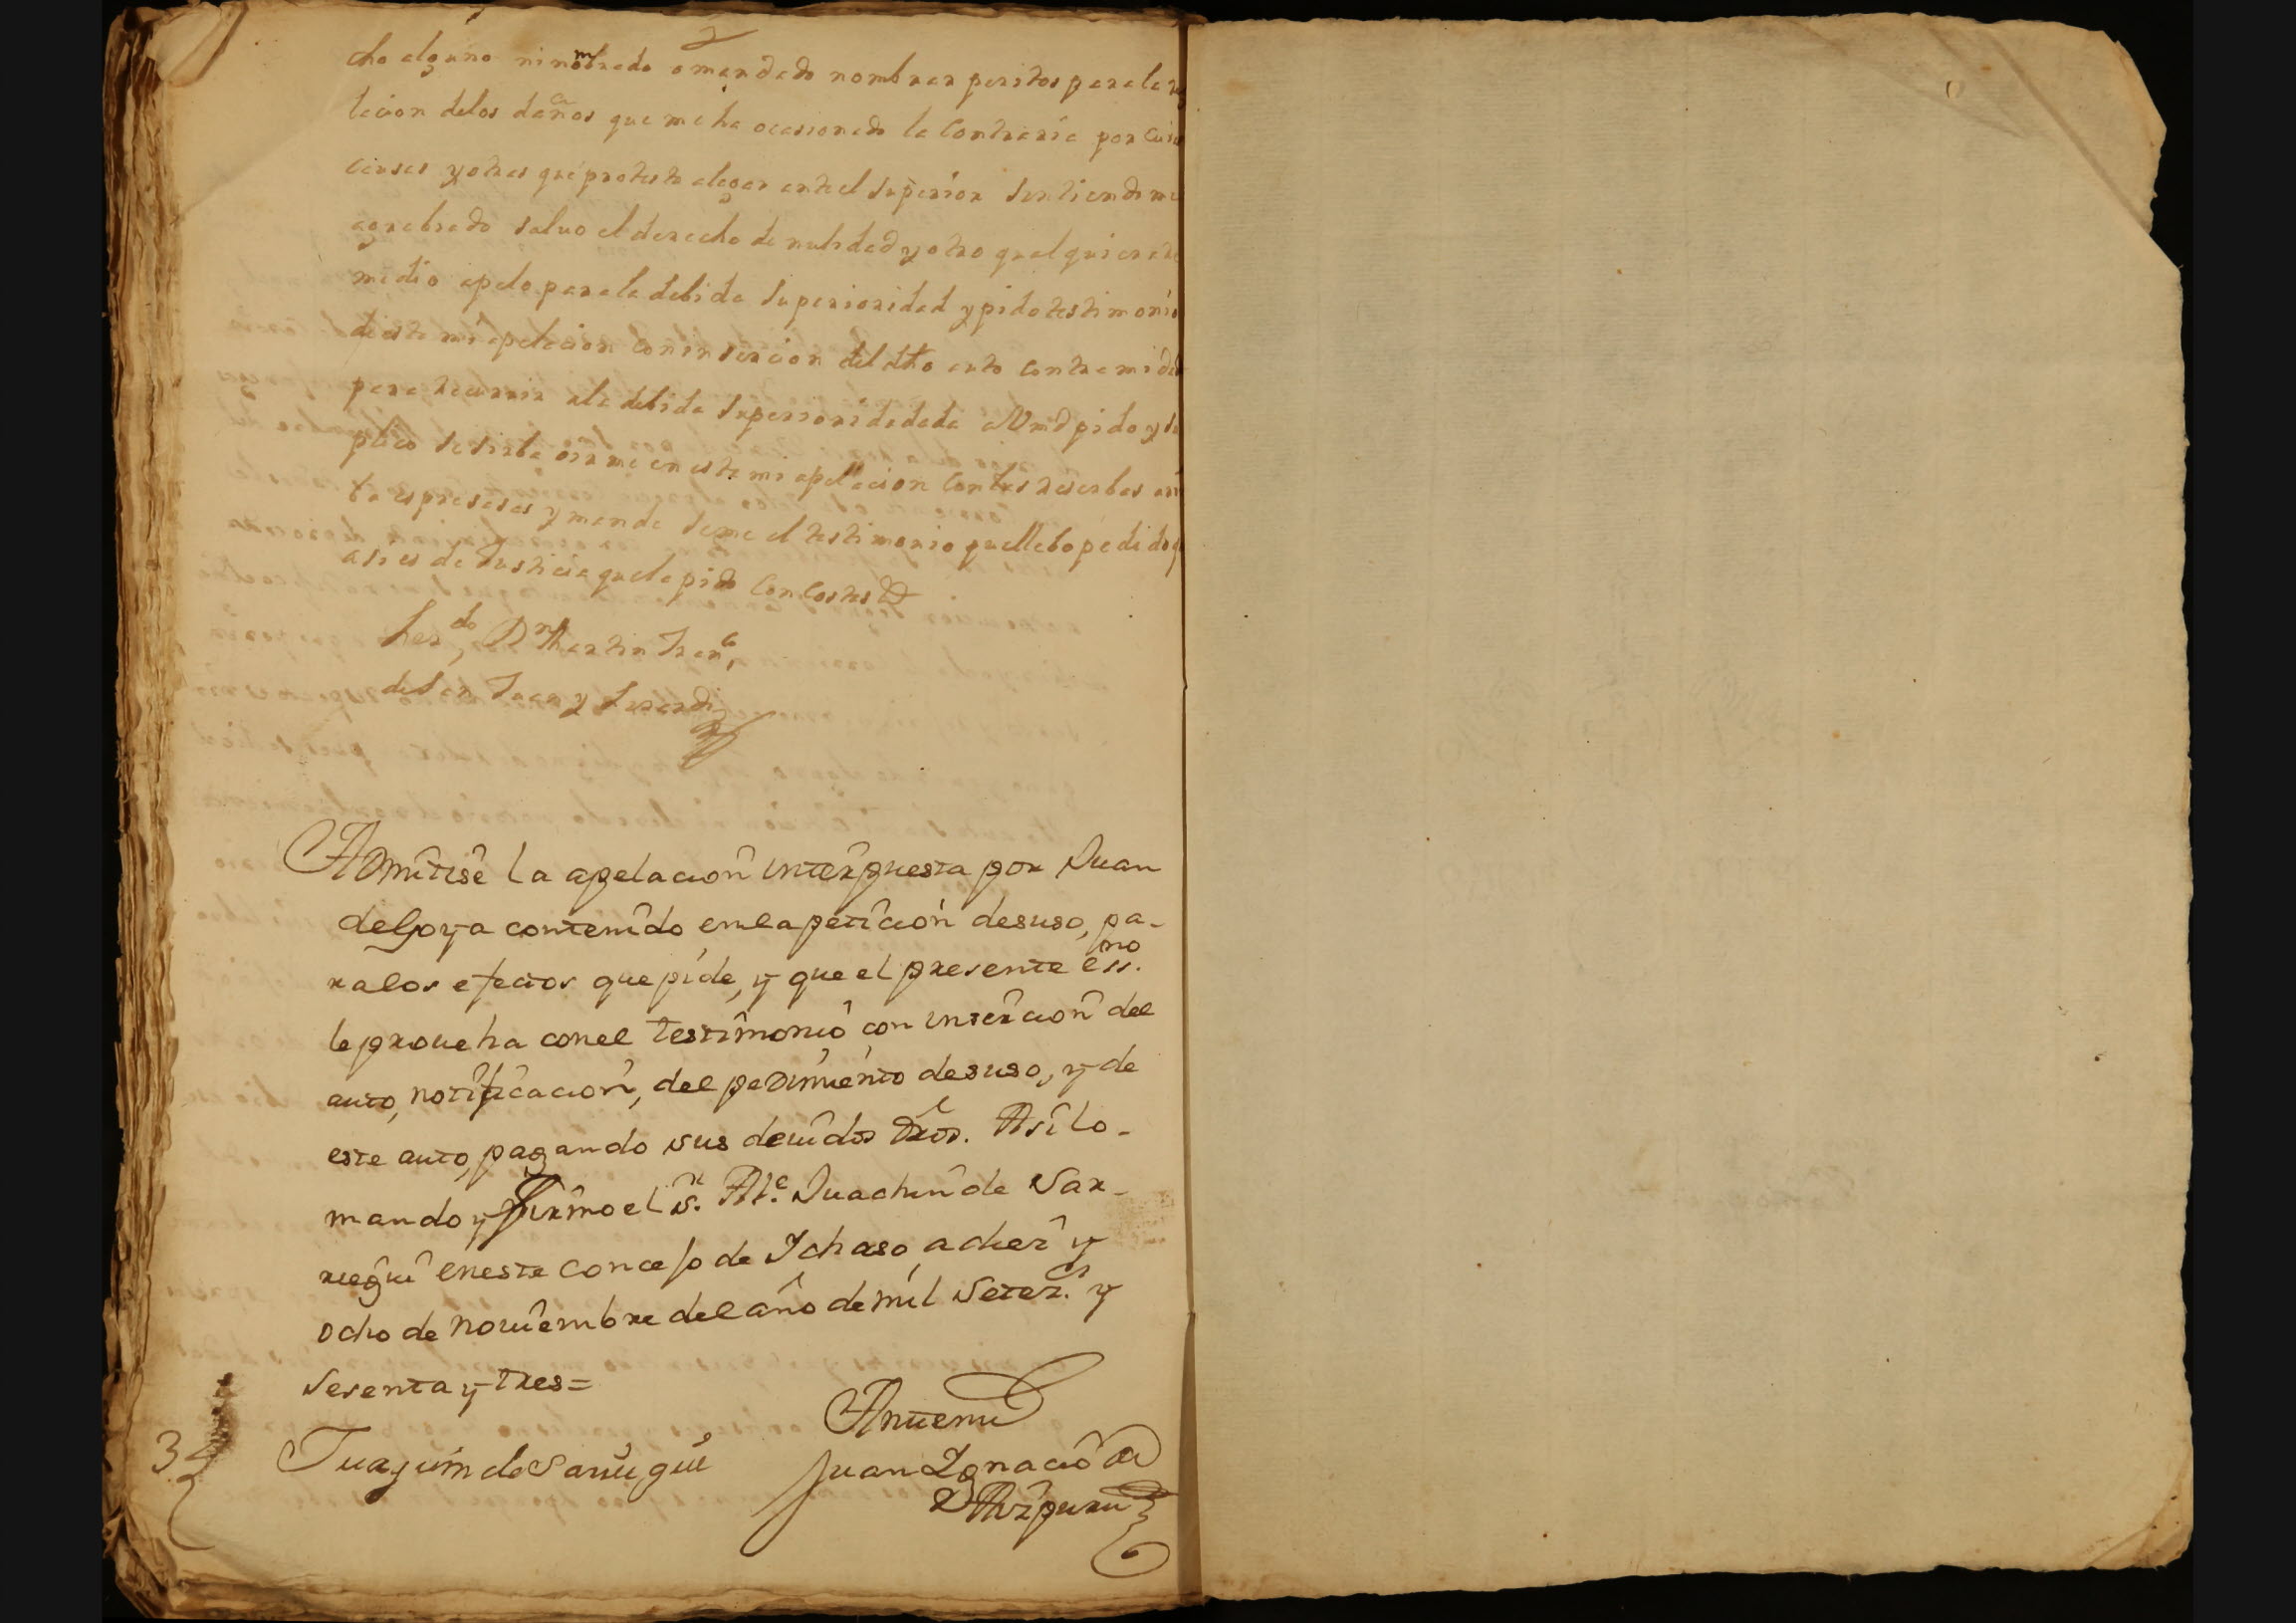 cho alguno ni nombrado o mandado nombrar peritos para la
tacion delos daños que me ha ocasionado la contraria por
causas y otras que protesto alegar ante el superior sintiendome
agrabiado salvo el derecho de nulidad y otro qualquiera re
medio apelo para la debida superioridad y pido testimonio
de esta mi apelacion con insercion del dho auto contra mi
para recurrir ala debida superioridad a Vmd pido y su
plico se sirba oirme en esta mi apellacion con las reserbas
ta espresadas y manda seme el testimonio que llebo pedido
asi es de Justicia que la pido con costas
Lizdo Dn Martin
de San Juan y
Admitise la apelacion interpuesta por Juan
de Goya contenido en la peticion desuso, pa-
ra los efectos que pide, y que el presente essno.
le proueha con el testimonio con insercion del
auto, notificacion, del pedimiento desuso, y de
este auto, pagando sus deuidos dros. Asi lo-
mando y firmo el Sr. Alc.e Juachin de Sar-
riegui en este concejo de Ychaso, a diez y
ocho de nouiembre del año de mil Setez.os y
sesenta y tres=
Antemi
Juaquin de Sarriegui
Juan Ignacio de
Aizpuru